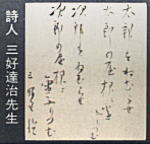 詩人 三好達治先生
太郎をねむらせ
太郎の屋根に雪ふりつむ
次郎をねむらせ
次郎の屋根に
雪ふりつむ
三好達治